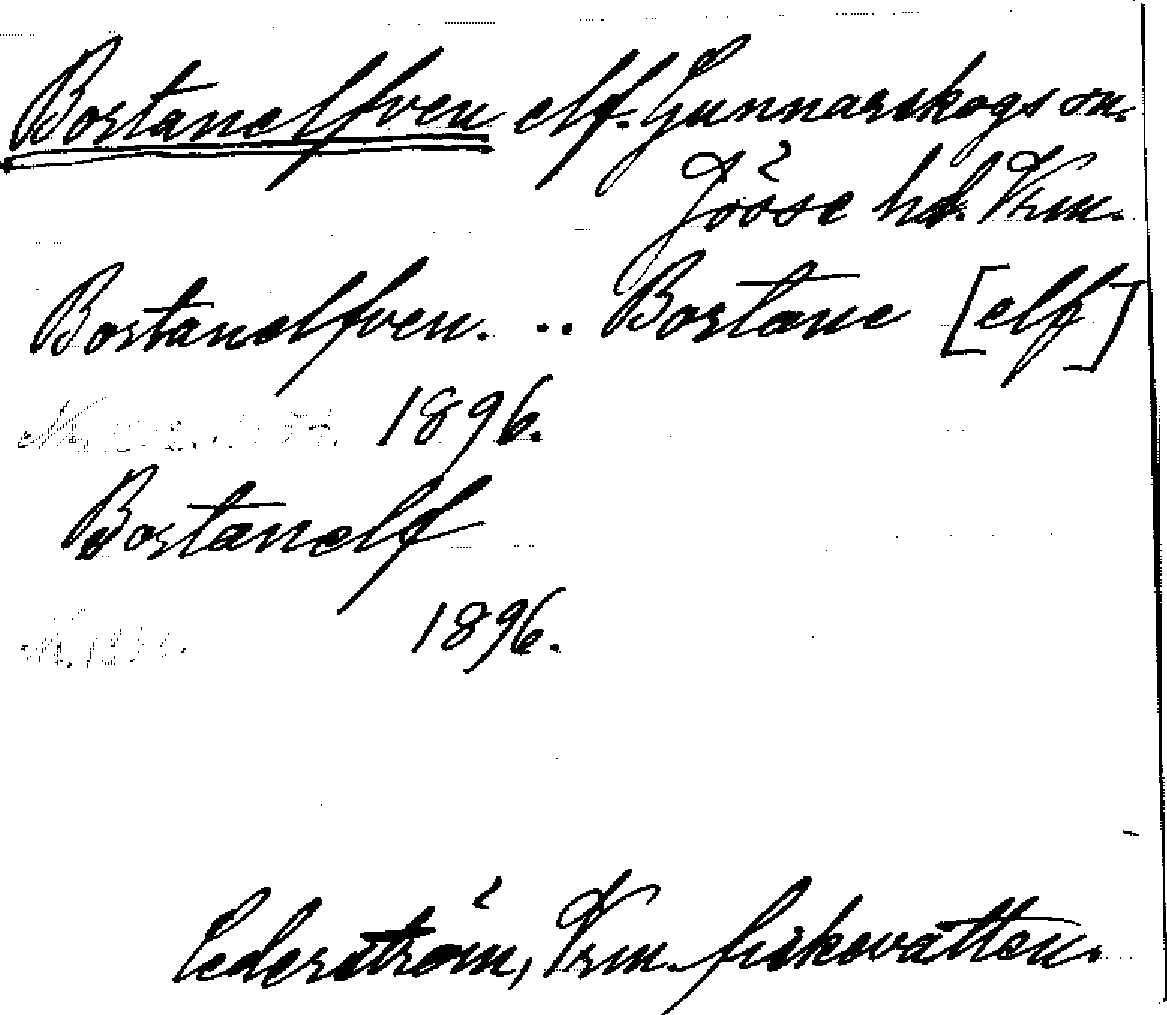 Bostanelfven elf. Gunnarskogs sn.
Jösse hd. Vrm.
Bostanelfven. .. Bostane [elf]
1896.
Bostanelf
1896.
Cederström, Vrm. fiskevatten.